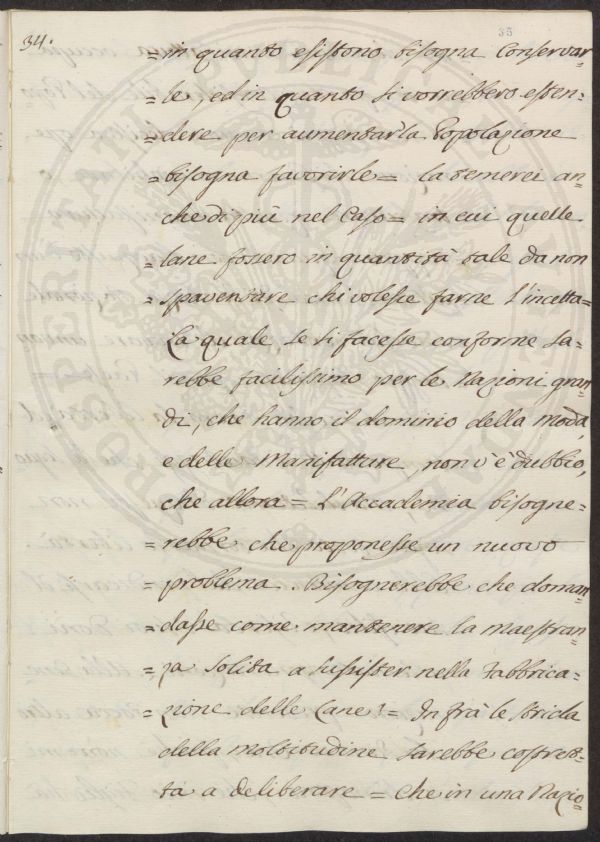 34.
35
=in quanto esistono bisogna conservar=
=le, ed in quanto si vorrebbero esten=
=dere per aumentar la Popolazione
=bisogna favorirle= la temerei an=
che di più nel Caso= in cui quelle
=lane fossero in quantità tale da non
=spaventare chi volesse farne l'incetta=
La quale, se si facesse conforme sa=
rebbe facilissimo per le Nazioni gran=
di, che hanno il dominio della moda,
e delle Manifatture, non v'è dubbio,
che allora= L'Accademia bisogne=
=rebbe che proponesse un nuovo
=problema. Bisognerebbe che doman=
=dasse come mantenere la maestran=
=za solita a sussister nella Fabbrica=
=zione delle Lane!= Infrà le strida
della moltitudine sarebbe costret=
ta a deliberare= Che in una Nazio=
PROSPERITATI PUBLICAE AUGENDAE